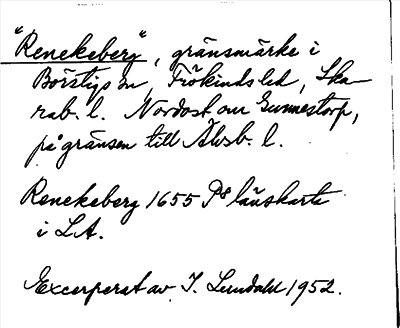 "Renekeberg", gränsmärke i
Börstigs sn, Frökinds hd, Ska-
rab. l. Nordost om Gunnestorp,
på gränsen till Älvsb. l.
Renekeberg 1655 P8 länskarta
i LA.
Excerperat av I. Lundahl 1952.